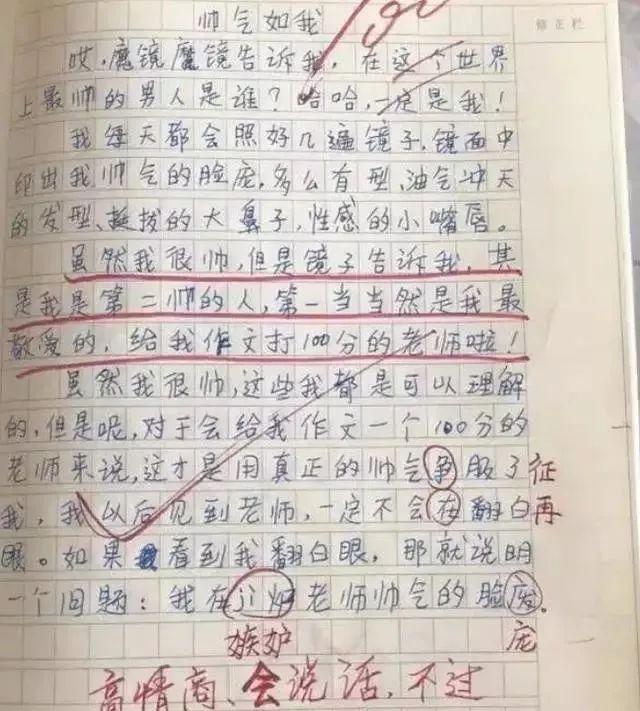 帅气如我
修正栏
哎,魔镜魔镜告诉我,在这个世界
上最帅的男人是谁?哈哈,一定是我!
我每天都会照好几遍镜子,镜面中
印出我帅气的脸庞,多么有型,油气冲天
的发型、挺拔的大鼻子,性感的小嘴唇。
虽然我很帅,但是镜子告诉我,其
是我是第二帅的人,第一当当然是我最
敬爱的,给我作文打100分的老师啦!
虽然我很帅,这些我都是可以理解
的,但是呢,对于会给我作文一个100分的
老师来说,这才是用真正的帅气争服了 征
我,我以后见到老师,一定不会在翻白 再
眼。如果看到我翻白眼,那就说明
一个问题:我在ji妒老师帅气的脸
嫉妒 庞
高情商、会说话,不过